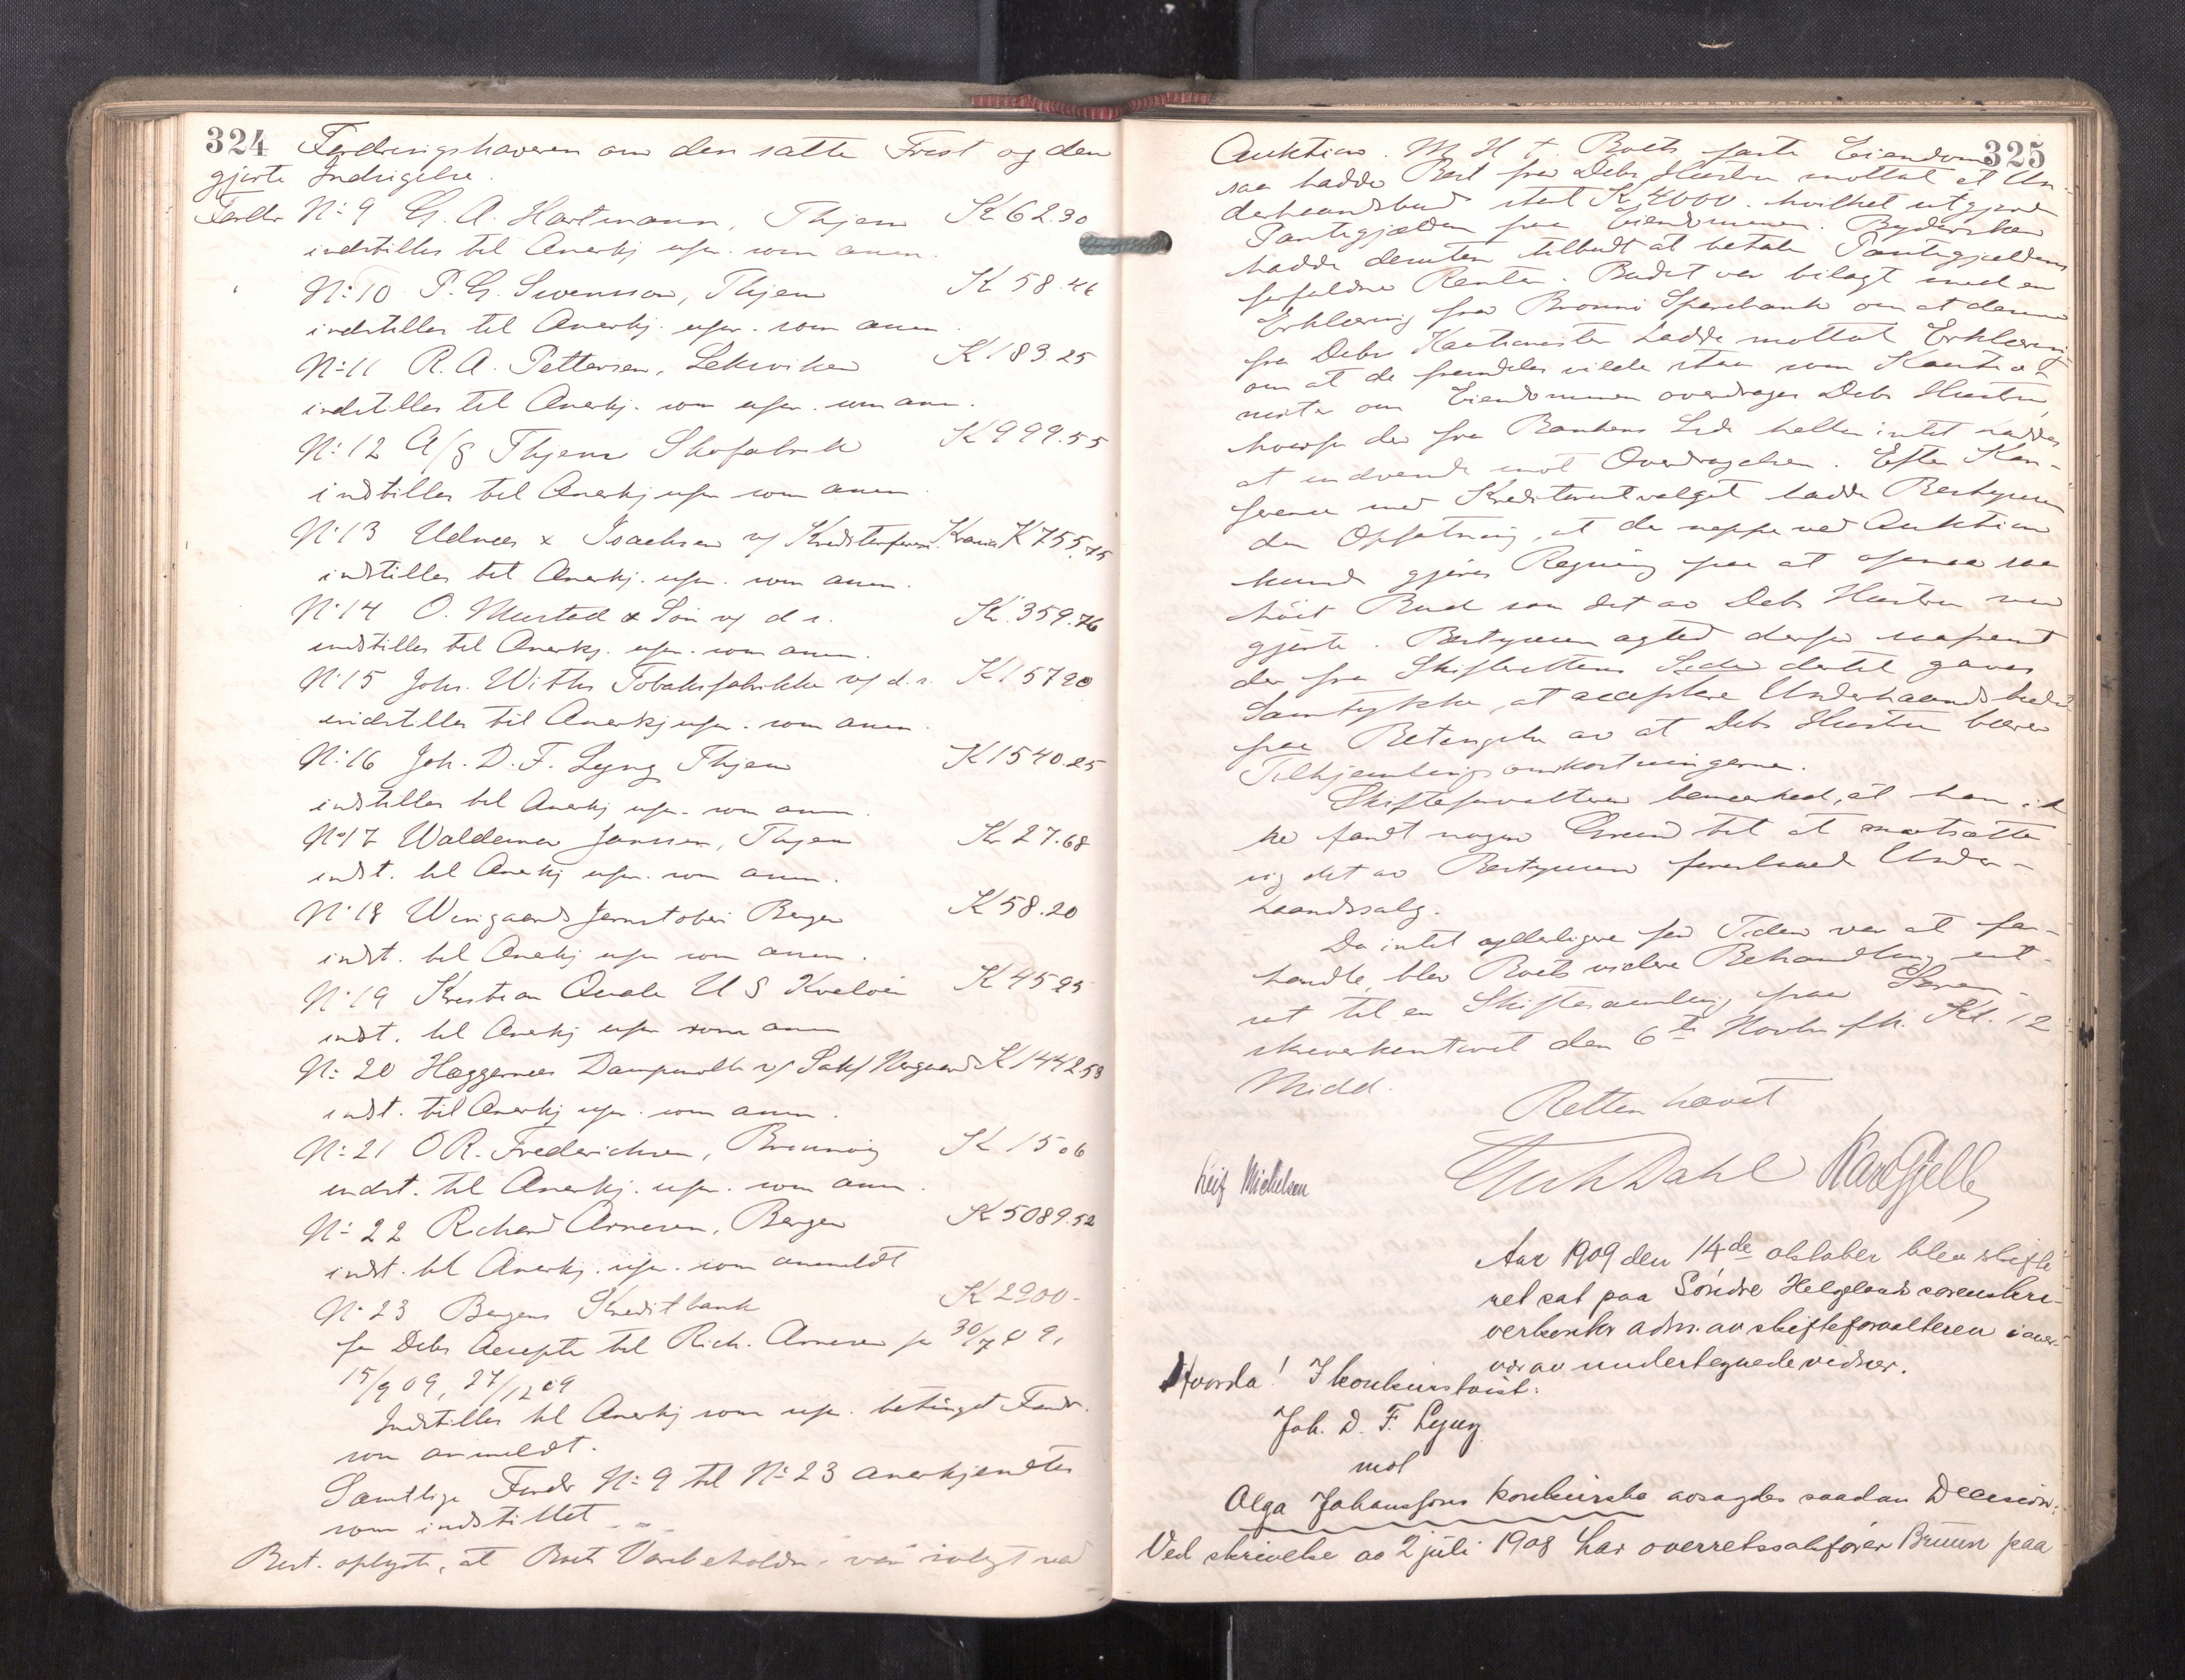 324 Fordringshaveren om den satte Frist og den
gjorte Indsigelse.
Fordr No 9 G. A. Hartmann, Thjem Kr 62.30
indstilles til Anerkj. upr. som anm.
No 10 P. G. Svensson, Thjem Kr 58.46
indstilles til Anerkj. upr. som anm.
No 11 R. A. Pettersen, Lekviken Kr 183.25
indstilles til Anerkj. som upr. som anm.
No 12 A/S Thjems Skofabrik Kr 999.55
indstilles til Anerkj upr som anm.
No 13 Udnæs & Isachsen v/ Kreditorforen. Krania Kr 755.75
indstilles til Anerkj. upr. som anm.
No 14 O. Mustad & Søn v/ d. s. Kr. 359.76
indstilles til Anerkj. upr. som anm.
No 15 Johs. Witths Tobaksfabrikker v/ d. s. Kr 157 20
indstilles til Anerkj upr. som anm.
No 16 Joh. D. F. Lyng Thjem Kr 1540.25
indstilles til Anerkj upr. som anm.
No 17 Waldemar Janssen, Thjem Kr 27.68
indst. til Anerkj upr. som anm.
No 18 Wingaards Jernstøberi Bergen Kr 58.20
indst. til Anerkj upr som anm.
No 19 Kristian Qvale U S Kvaløen Kr 45 95
indst. til Anerkj upr som anm
No 20 Hæggernæs Dampmølle v/ Sakf Nergaard Kr 1442.53
indst. til Anerkj upr. som anm.
No 21 O R. Frederichsen, Brønnøy Kr 15 06
indst. til Anerkj. upr. som anm.
No 22 Richard Arnesen, Bergen Kr 5089.52
indst. til Anerkj. upr. som anmeldt
No 23 Bergens Kreditbank Kr 2900-
for Debs Accepter til Rich. Arnesen pr 30/7 09,
15/9 09, 27/12 09
Indstilles til Anerkj som upr. betinget Fordr.
som anmeldt.
Samtlige Fordr No 9 til No 23 anerkjendtes
som indstillet.
Best. oplyste, at Boets Varebeholdn. var solgt ved
325
Auktion. M H t. Boets faste Eiendom
saa hadde Best fra Debs Hustru mottat et Un-
derhaandsbud stort Kr 4000. hvilket utgjorde
Pantegjælden paa Eiendommen. Bydersken
hadde desuten tilbudt at betale Pantegjældens
forfaldne Renter. Budet var bilagt med en
Erklæring fra Brønnø Sparebank om at denne
fra Debs Kautionister hadde mottat Erklæring
om at de fremdeles vilde staa som Kautio-
nister om Eiendommen overdrages Debs Hustru,
hvorfor der fra Bankens Side heller intet haddes
at indvende mot Overdragelsen. Efter Kon-
ferance med Kreditorutvalget hadde Bestyreren
den Opfatning, at der neppe ved Auktion
kunde gjøres Regning paa at opnaa saa
høit Bud som det av Debs Hustru nu
gjorte. Bestyreren agted derfor saafremt
der fra Skifterettens Side dertil gaves
Samtykke, at acceptere Underhaandsbudet
paa Betingelse av at Debs Hustru bærer
Tilhjemlingsomkostningerne.
Skifteforvalteren bemerked, at han ik
ke fandt nogen Grund til at motsætte
sig det av Bestyreren foreslaaede Under-
haandssalg.
Da intet yderligere for Tiden var at for-
handle, blev Boets videre Behandling ut-
sat til en Skiftesamling paa Soren-
skriverkontoret den 6te Novbr fk. Kl. 12
Midd.
Retten hævet
Leif Michelsen
Dahl
Karl Gjelle
Aar 1909 den 14de oktober blev skifte
ret sat paa Søndre Helgelands sorenskri-
verkontor adm. av skifteforvalteren i over-
vær av undertegnede vidner.
Hvorda! I konkurstvist:
Joh. D. F. Lyng
mot
Olga Johanssons konkursbo avsagdes saadan Decision:
Ved skrivelse av 2 juli 1908 har overretssakfører Bruun paa